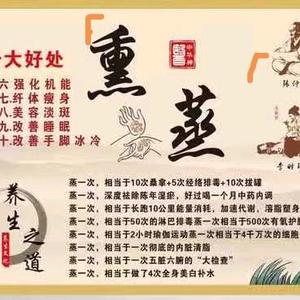 十大好处
六 强化机能
七.纤体瘦身
八.美容淡斑
九.改善睡眠
十.改善手脚冰冷
熏蒸
中华神
张仲
李时
养生之道
养生文化
蒸一次，相当于10次桑拿+5次经络排毒+10次拔罐
蒸一次，深度祛除陈年湿瘀，好过喝一个月中药内调
蒸一次，相当于长跑10公里能量消耗，加速代谢，溶脂塑身
蒸一次，相当于50次的淋巴排毒蒸一次，相当于500次有氧护肤
蒸一次，相当于2小时瑜伽运动蒸一次，相当于4千万次的细胞
蒸一次，相当于一次彻底的内脏清脂
蒸一次，相当于一次五脏六腑的“大检查”
蒸一次，相当于做了4次全身美白补水